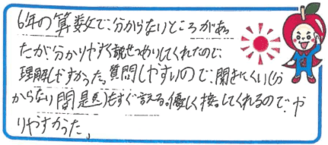 6年の算数で、分からないところがあっ
たが分かりやすく説明してくれたので、
理解しやすかった。質問しやすいので、聞きにくい(分
からない問題)もすぐ言える。優しく接してくれるので、や
りやすかった。